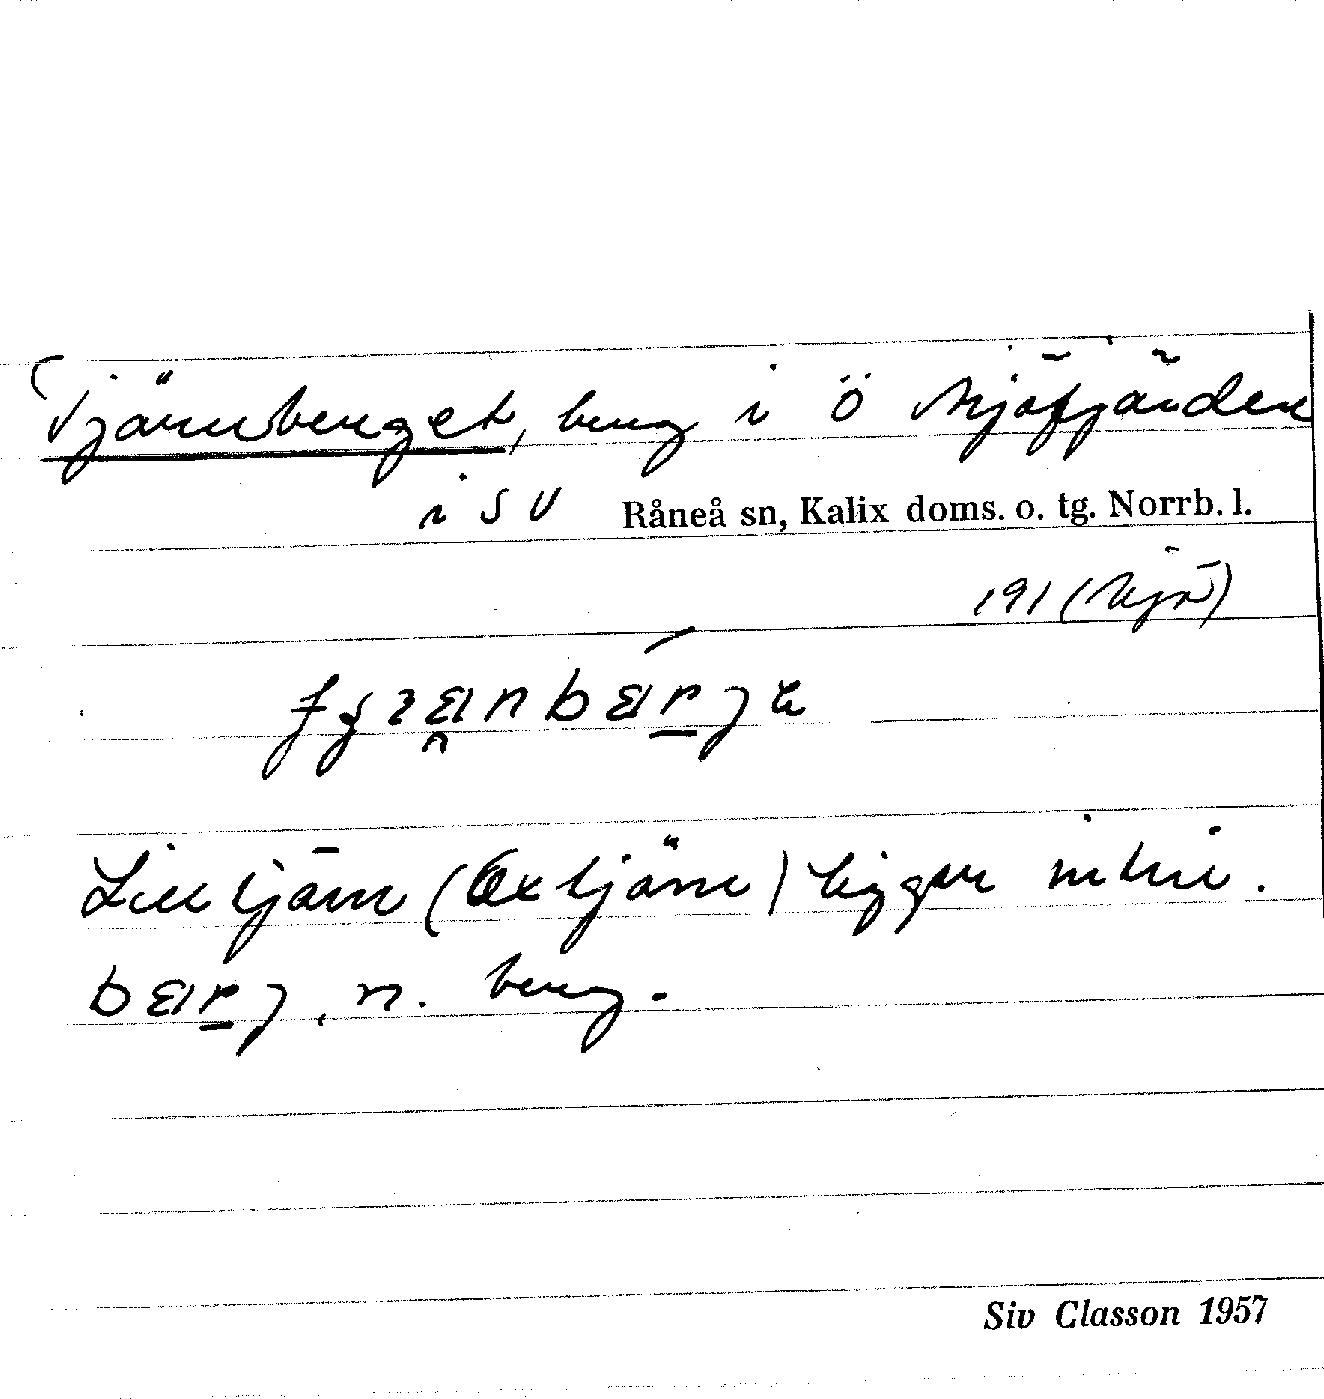 Tjärnberget, berg i Ö Mjöfjärden
i SV Råneå sn, Kalix doms. o. tg. Norrb. l.
191 (Mjö)
Lilltjärn (Öxtjärn) ligger intill.
n. berg.
Siv Classon 1957